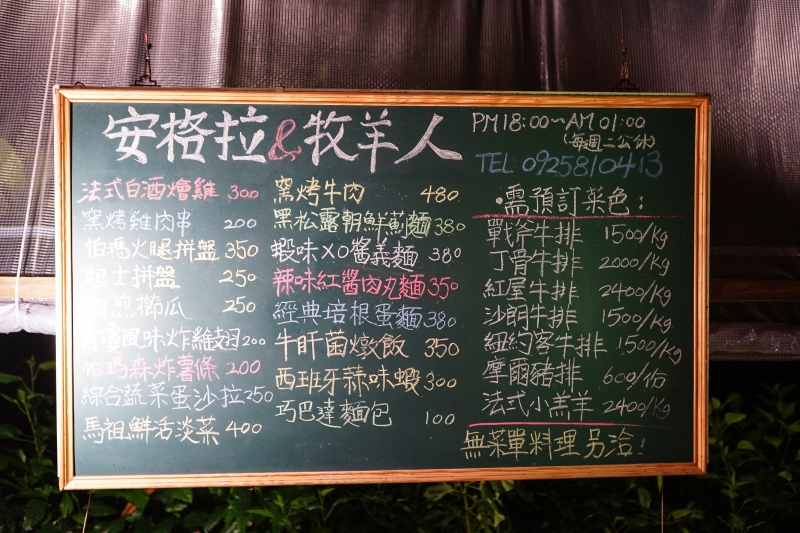 安格拉&牧羊人
PM18:00~AM01:00
(每週二公休)
TEL 0925810413
法式白酒燴雞 300
窯烤雞肉串 200
帕瑪火腿拼盤 350
起士拼盤 250
煎櫛瓜 250
風味炸雞翅 200
帕瑪森炸薯條 200
綜合蔬菜蛋沙拉 250
馬祖鮮活淡菜 400
窯烤牛肉 480
黑松露朝鮮薊麵 380
蝦味XO醬義麵 380
辣味紅醬肉丸麵 350
經典培根蛋麵 380
牛肝菌燉飯 350
西班牙蒜味蝦 300
巧巴達麵包 100
·需預訂菜色:
戰斧牛排 1500/Kg
丁骨牛排 2000/Kg
紅屋牛排 2400/Kg
沙朗牛排 1500/Kg
紐約客牛排 1500/Kg
摩爾豬排 600/份
法式小羔羊 2400/Kg
無菜單料理另洽!